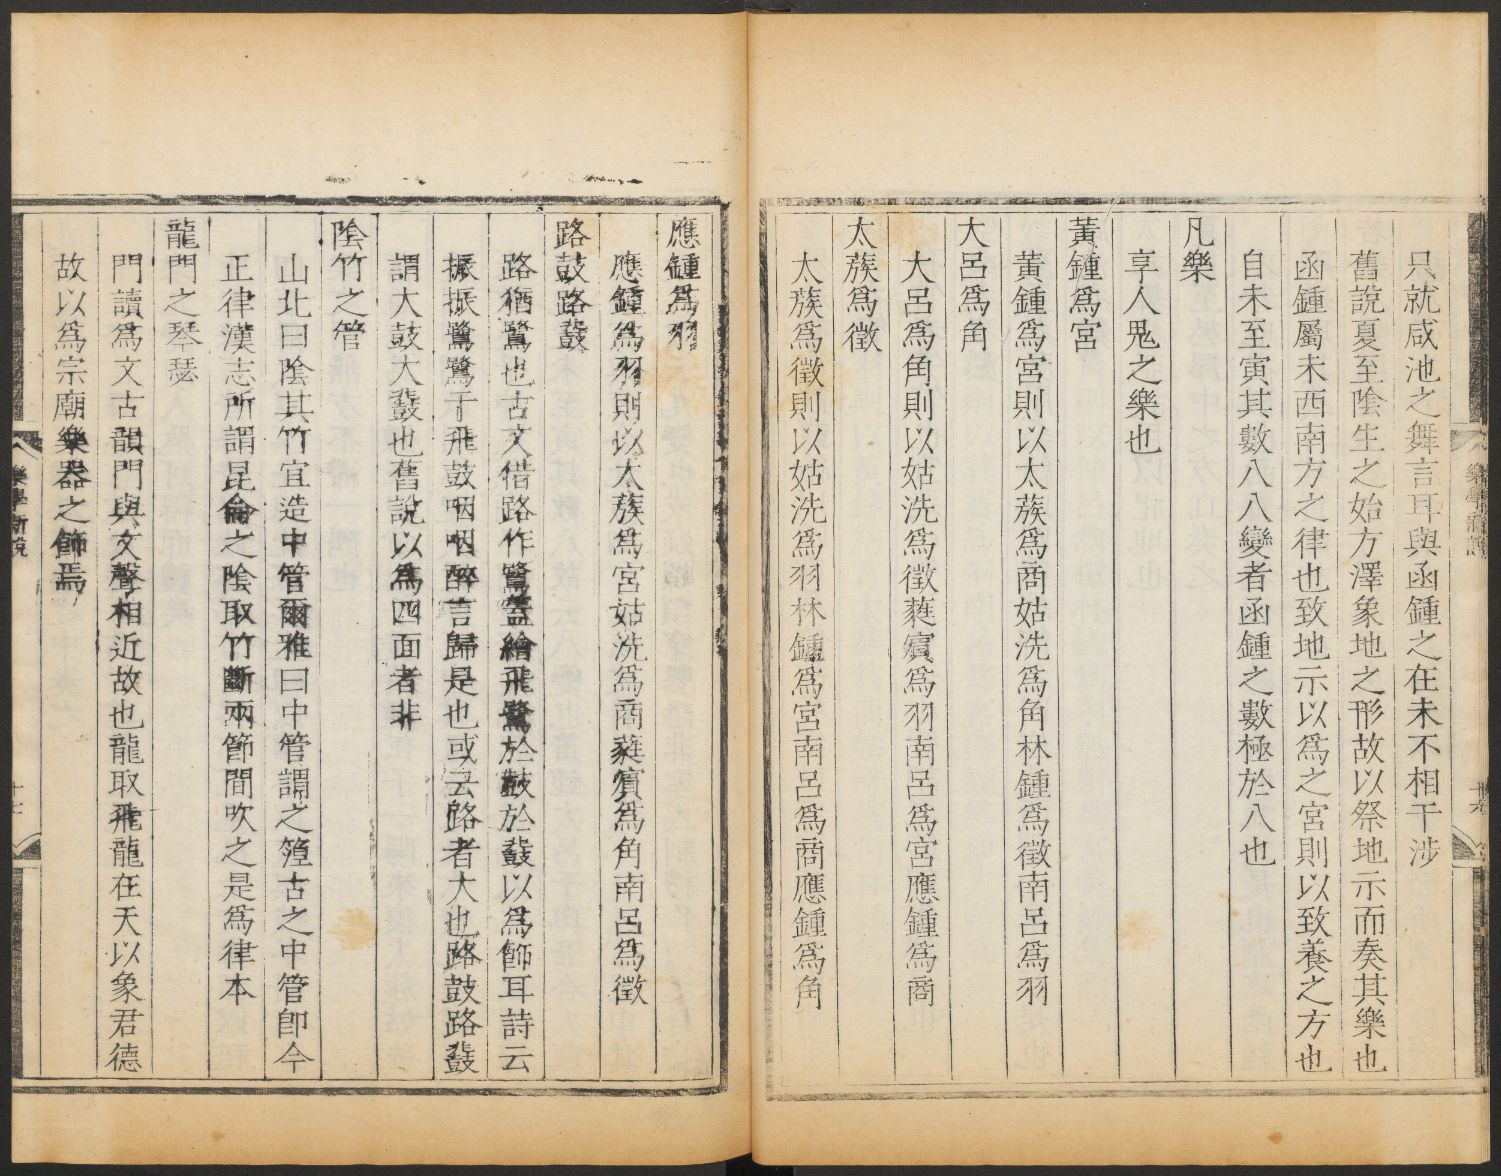 只就咸池之舞言耳與函鍾之在未不相干涉
舊說夏至陰生之始方澤象地之形故以祭地示而奏其樂也
函鍾屬未西南方之律也致地示以爲之宮則以致養之方也
自未至寅其數八八變者函鍾之數極於八也
凡樂
享人鬼之樂也
黃鍾爲宮
黃鍾爲宮則以太蔟爲商姑洗爲角林鍾爲徵南呂爲羽
大呂爲角
大呂爲角則以姑洗爲徵蕤賓爲羽南呂爲宮應鍾爲商
太蔟爲徵
太蔟爲徵則以姑洗爲羽林鍾爲宮南呂爲商應鍾爲角
樂學新說
應鍾爲羽
應鍾爲羽則以太蔟爲宮姑洗爲商蕤賓爲角南呂爲徵
路鼓路鼗
路猶鷺也古文借路作鷺蓋繪飛鷺於鼓於鼗以爲飾耳詩云
振振鷺鷺于飛鼓咽咽醉言歸是也或云路者大也路鼓路鼗
謂大鼓大鼗也舊說以爲四面者非
陰竹之管
山北曰陰其竹宜造中管爾雅曰中管謂之篞古之中管卽今
正律漢志所謂昆侖之陰取竹斷兩節間吹之是爲律本
龍門之琴瑟
門讀爲文古韻門與文聲相近故也龍取飛龍在天以象君德
故以爲宗廟樂器之飾焉
樂學新說
十七